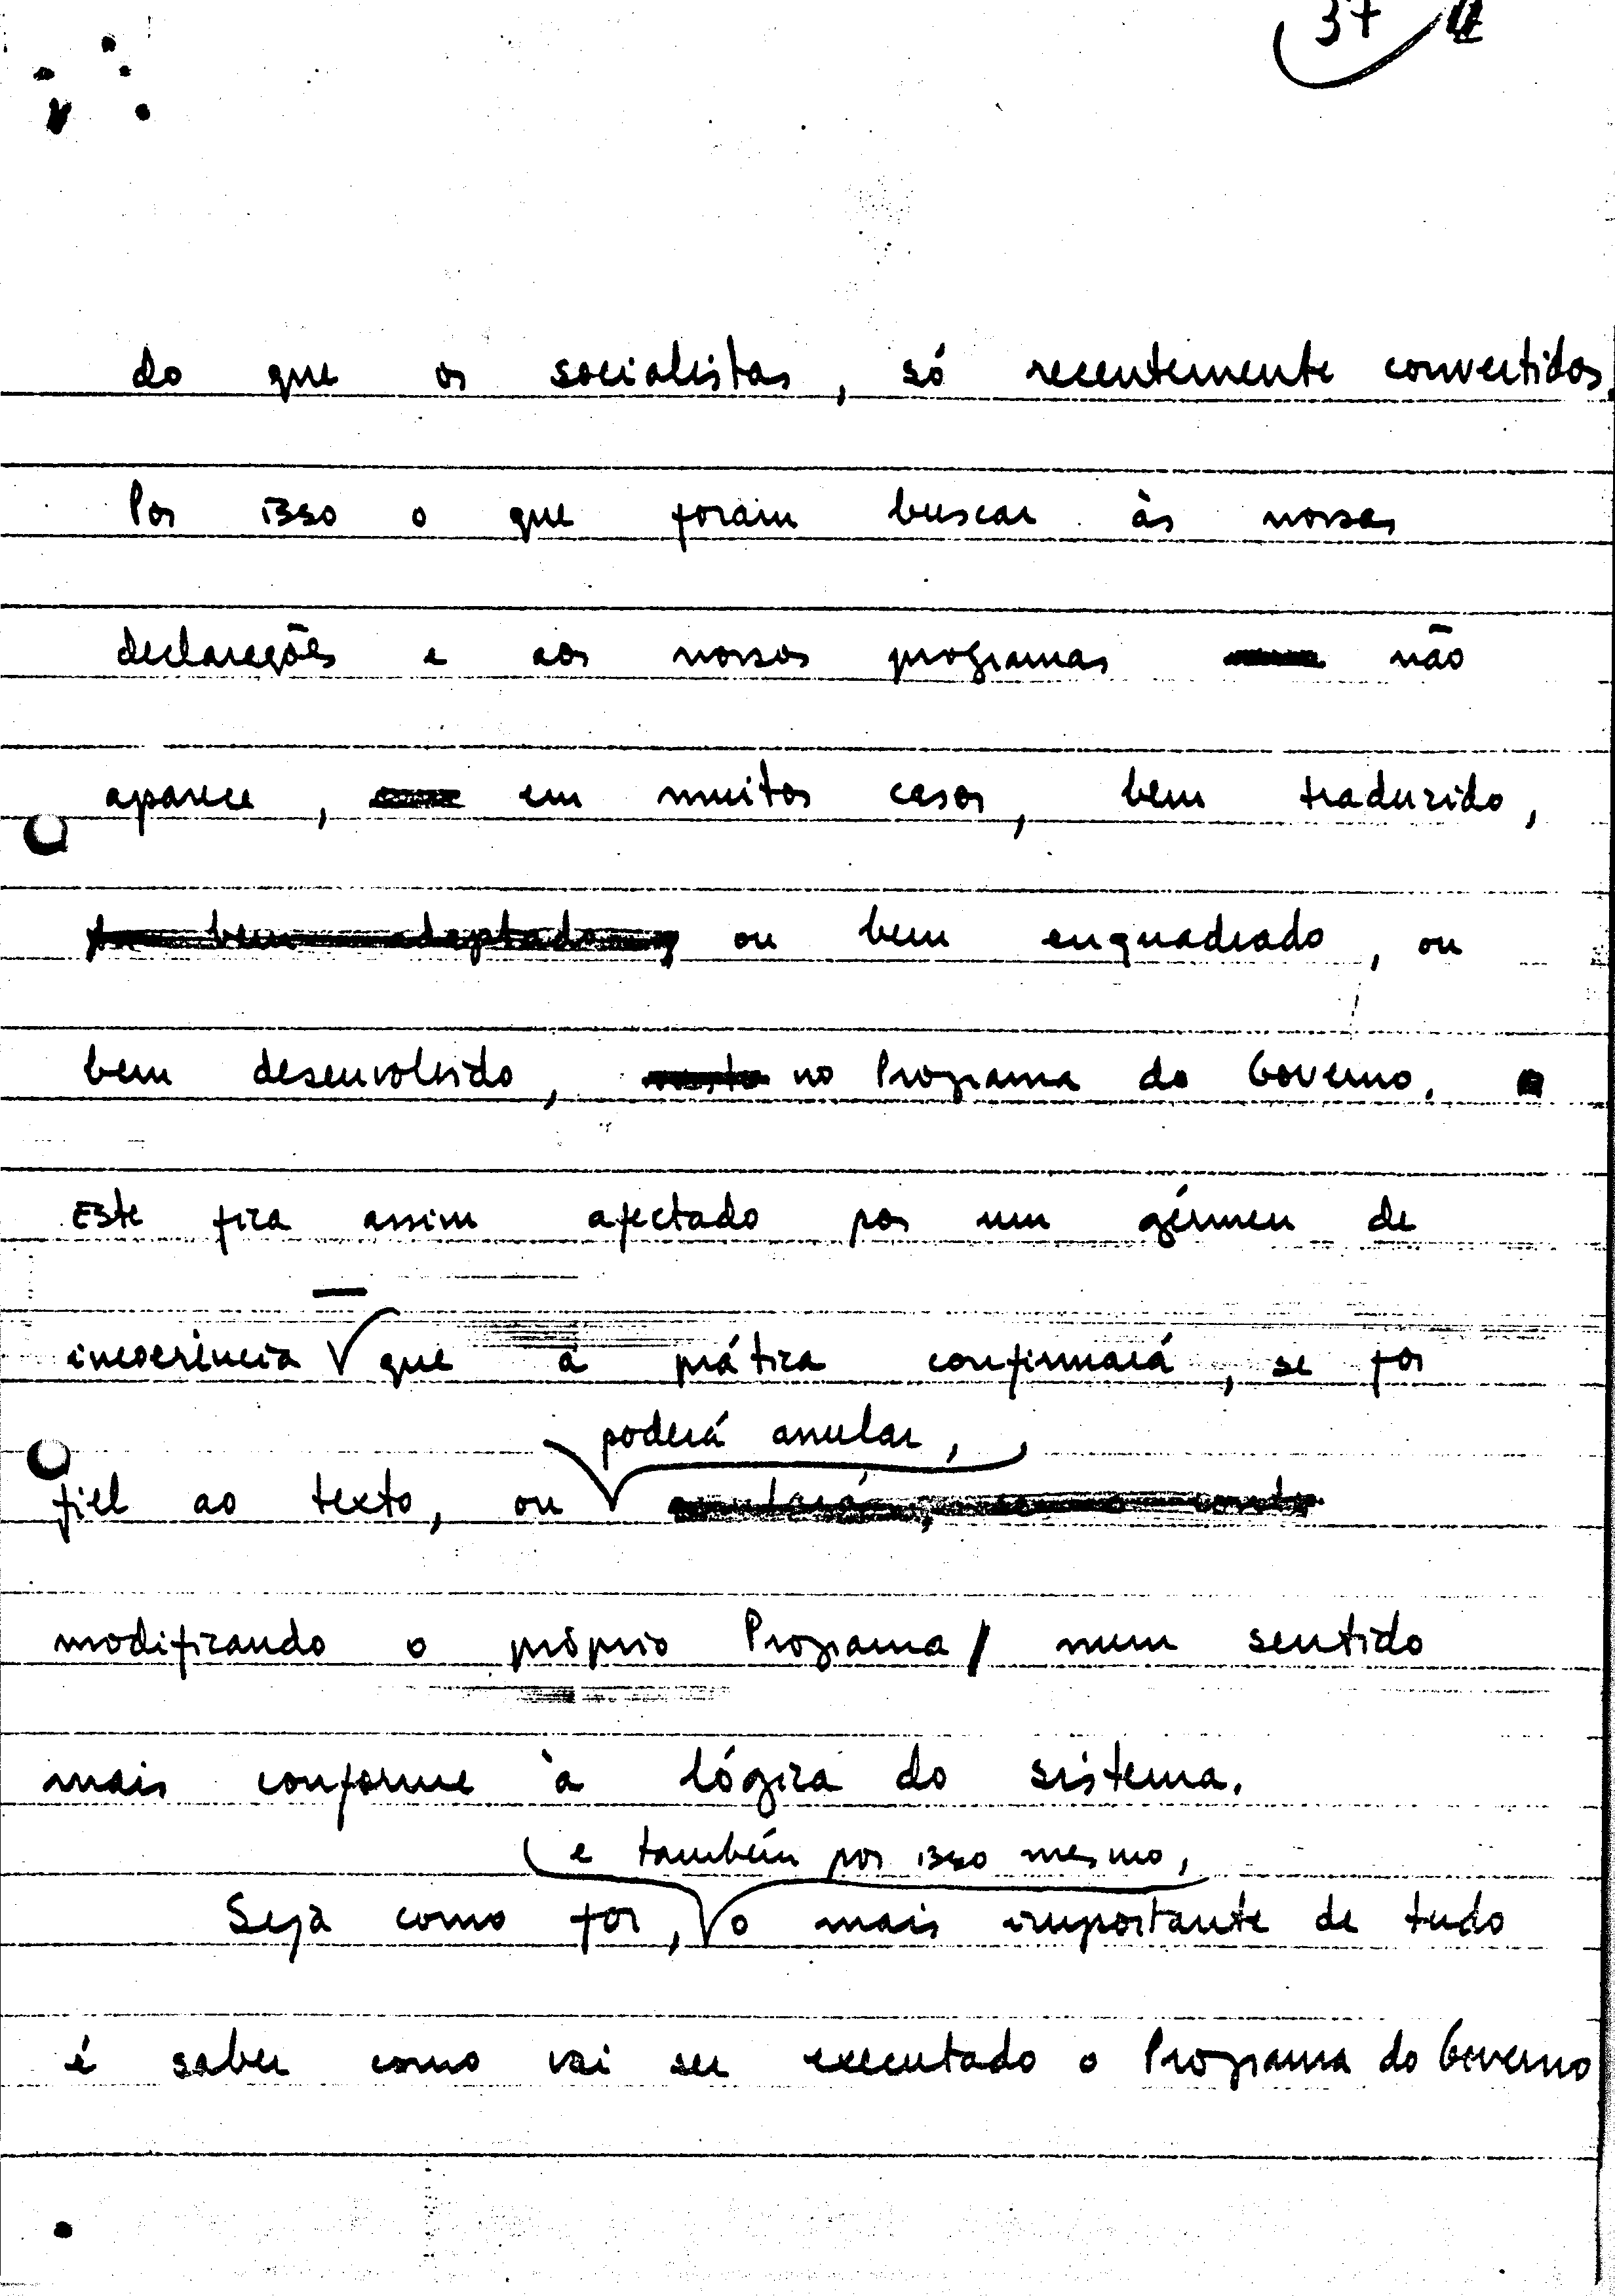 37
do que os socialistas, só recentemente convertidos.
Por isso o que foram buscar às nossas
declarações e aos nossos programas não
aparece, em muitos casos, bem traduzido,
ou bem enquadrado, ou
bem desenvolvido, no Programa do Governo.
Este fica assim afectado por um gérmen de
incoerência – que a prática confirmará, se for
poderá anular,
fiel ao texto, ou
modificando o próprio Programa num sentido
mais conforme à lógica do sistema.
e também por isso mesmo,
Seja como for, o mais importante de tudo
é saber como vai ser executado o Programa do Governo